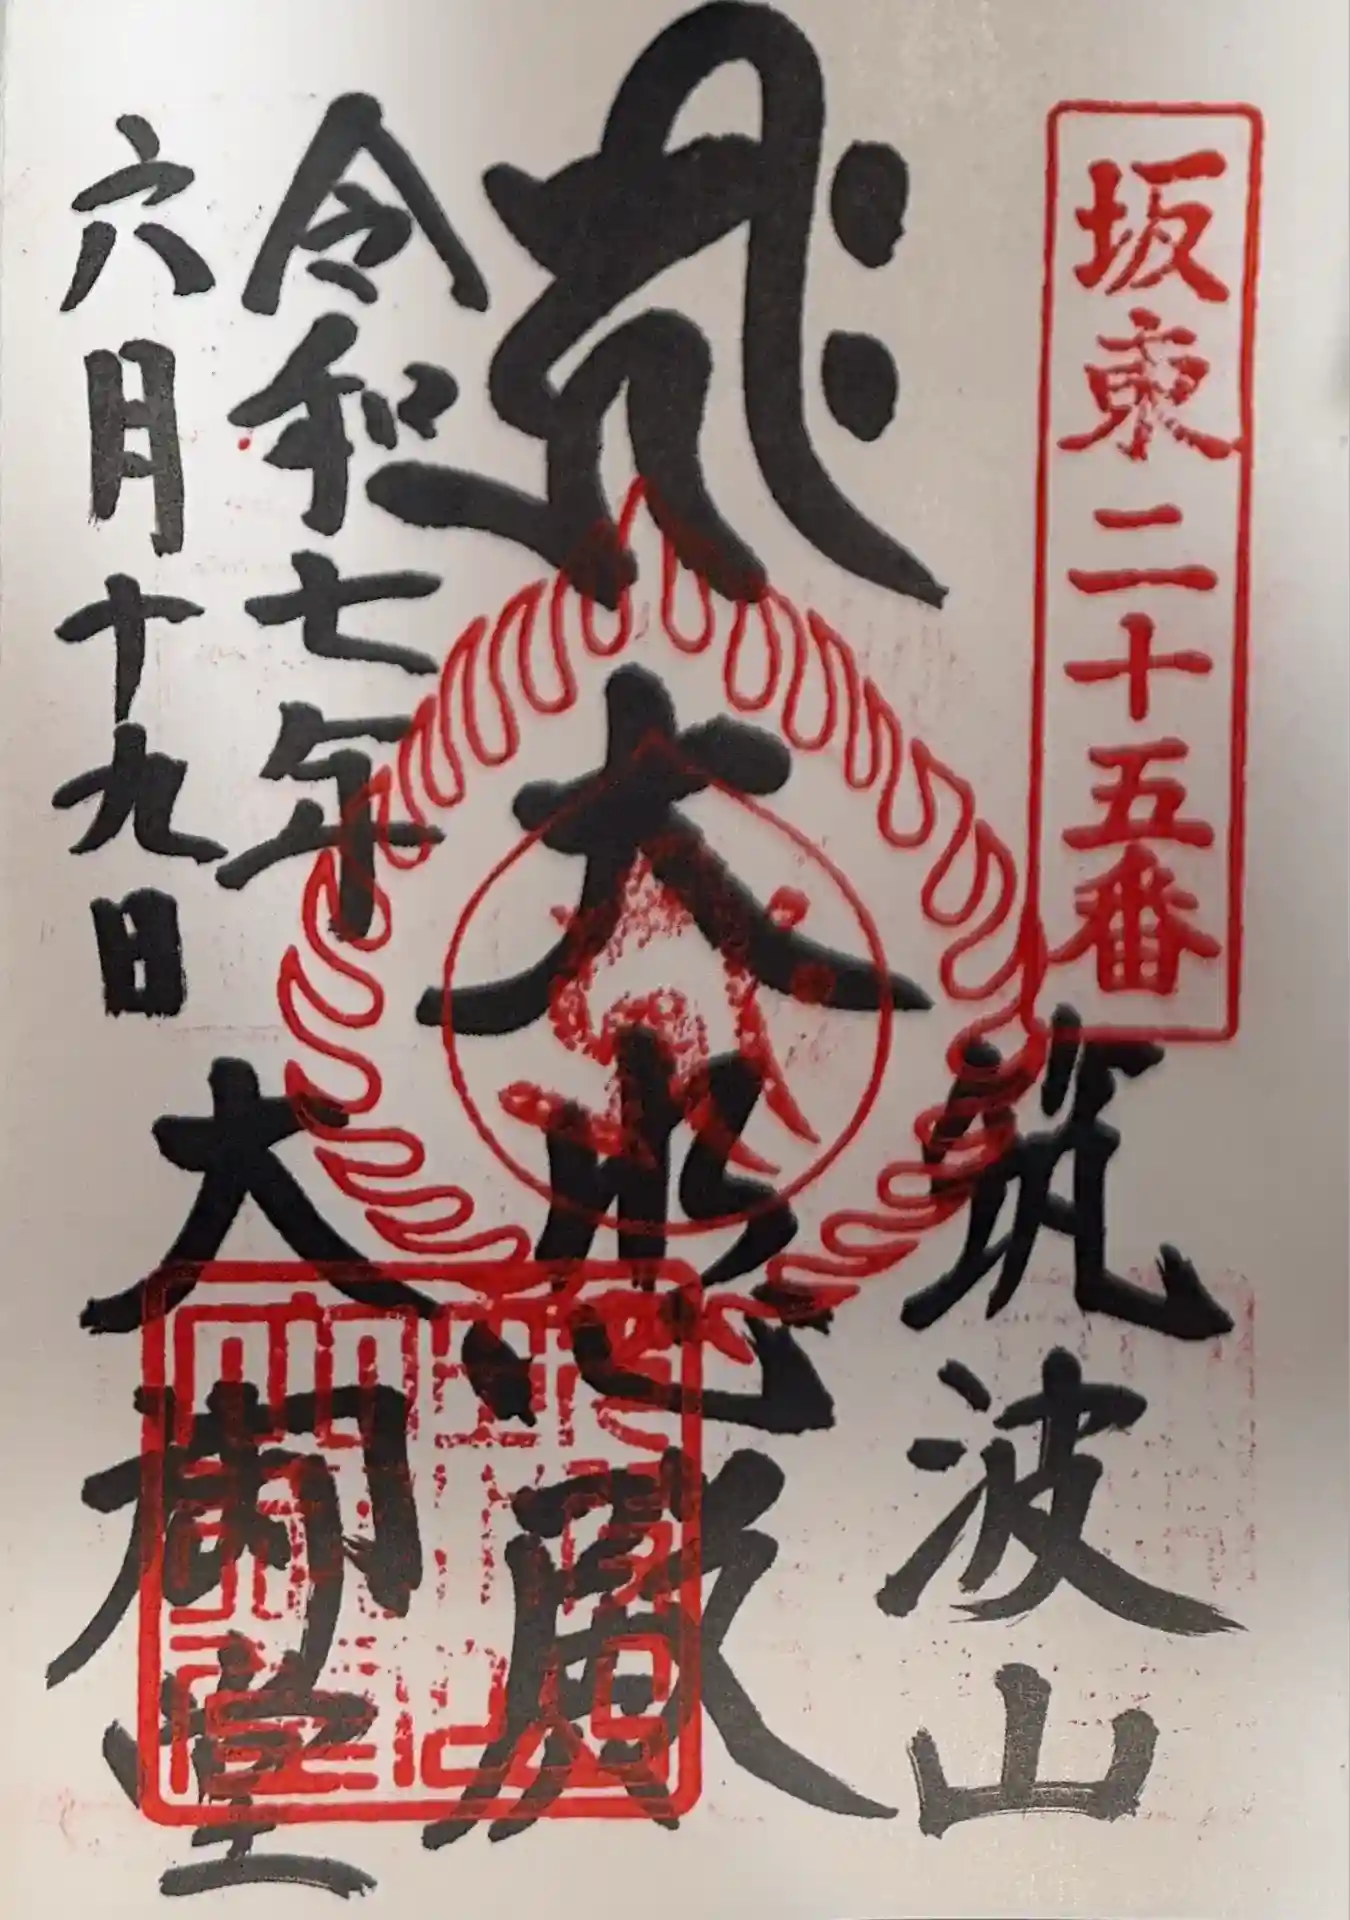 坂東二十五番
筑波山
𑖮𑖿𑖨𑖱𑖾
大悲殿
大御堂
令和七年
六月十九日